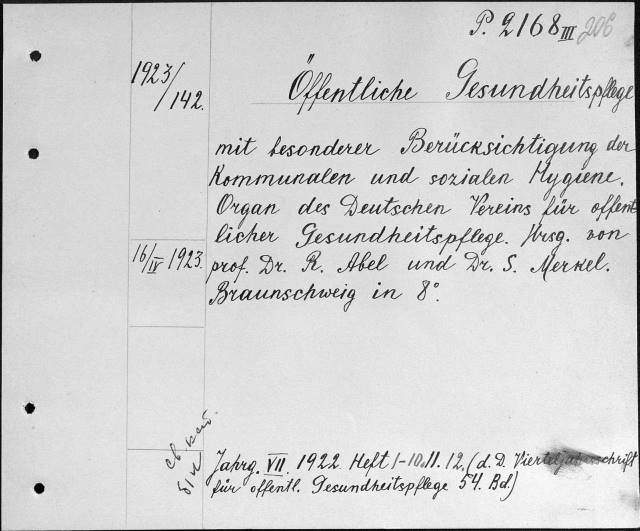 P. 2168 III 206
1923/142.
Öffentliche Gesundheitspflege
mit besonderer Berücksichtigung der
Kommunalen und sozialen Hygiene.
Organ des Deutschen Vereins für offent-
licher Gesundheitspflege. Hrsg. von
16/IV 1923. prof. Dr. R. Abel und Dr. S. Merkel.
Braunschweig in 8°.
Jahrg. VII. 1922 Heft 1-10. 11. 12. (d. D. Vierteljahrsschrift
für offentl. Gesundheitspflege 54. Bd)